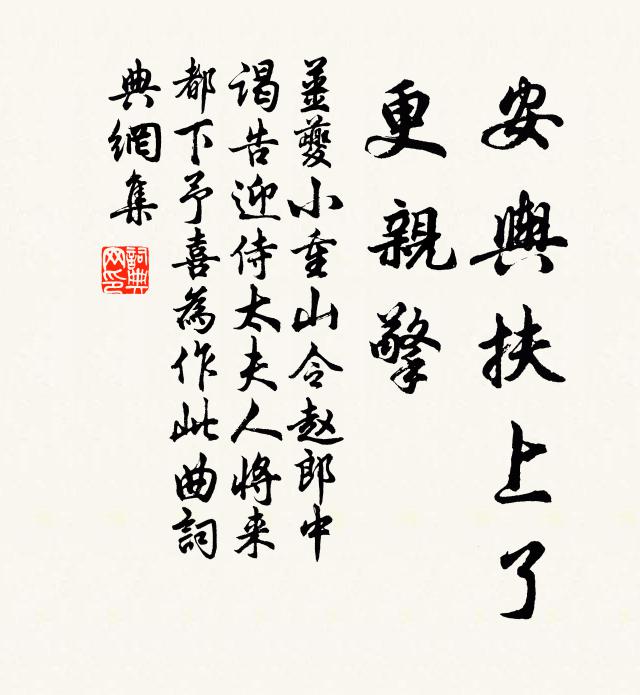 安輿扶上了
更親擎
姜夔小重山令赵郎中
谒告迎侍太夫人將来
都下予喜為作此曲詞
典網集
詞典
网印